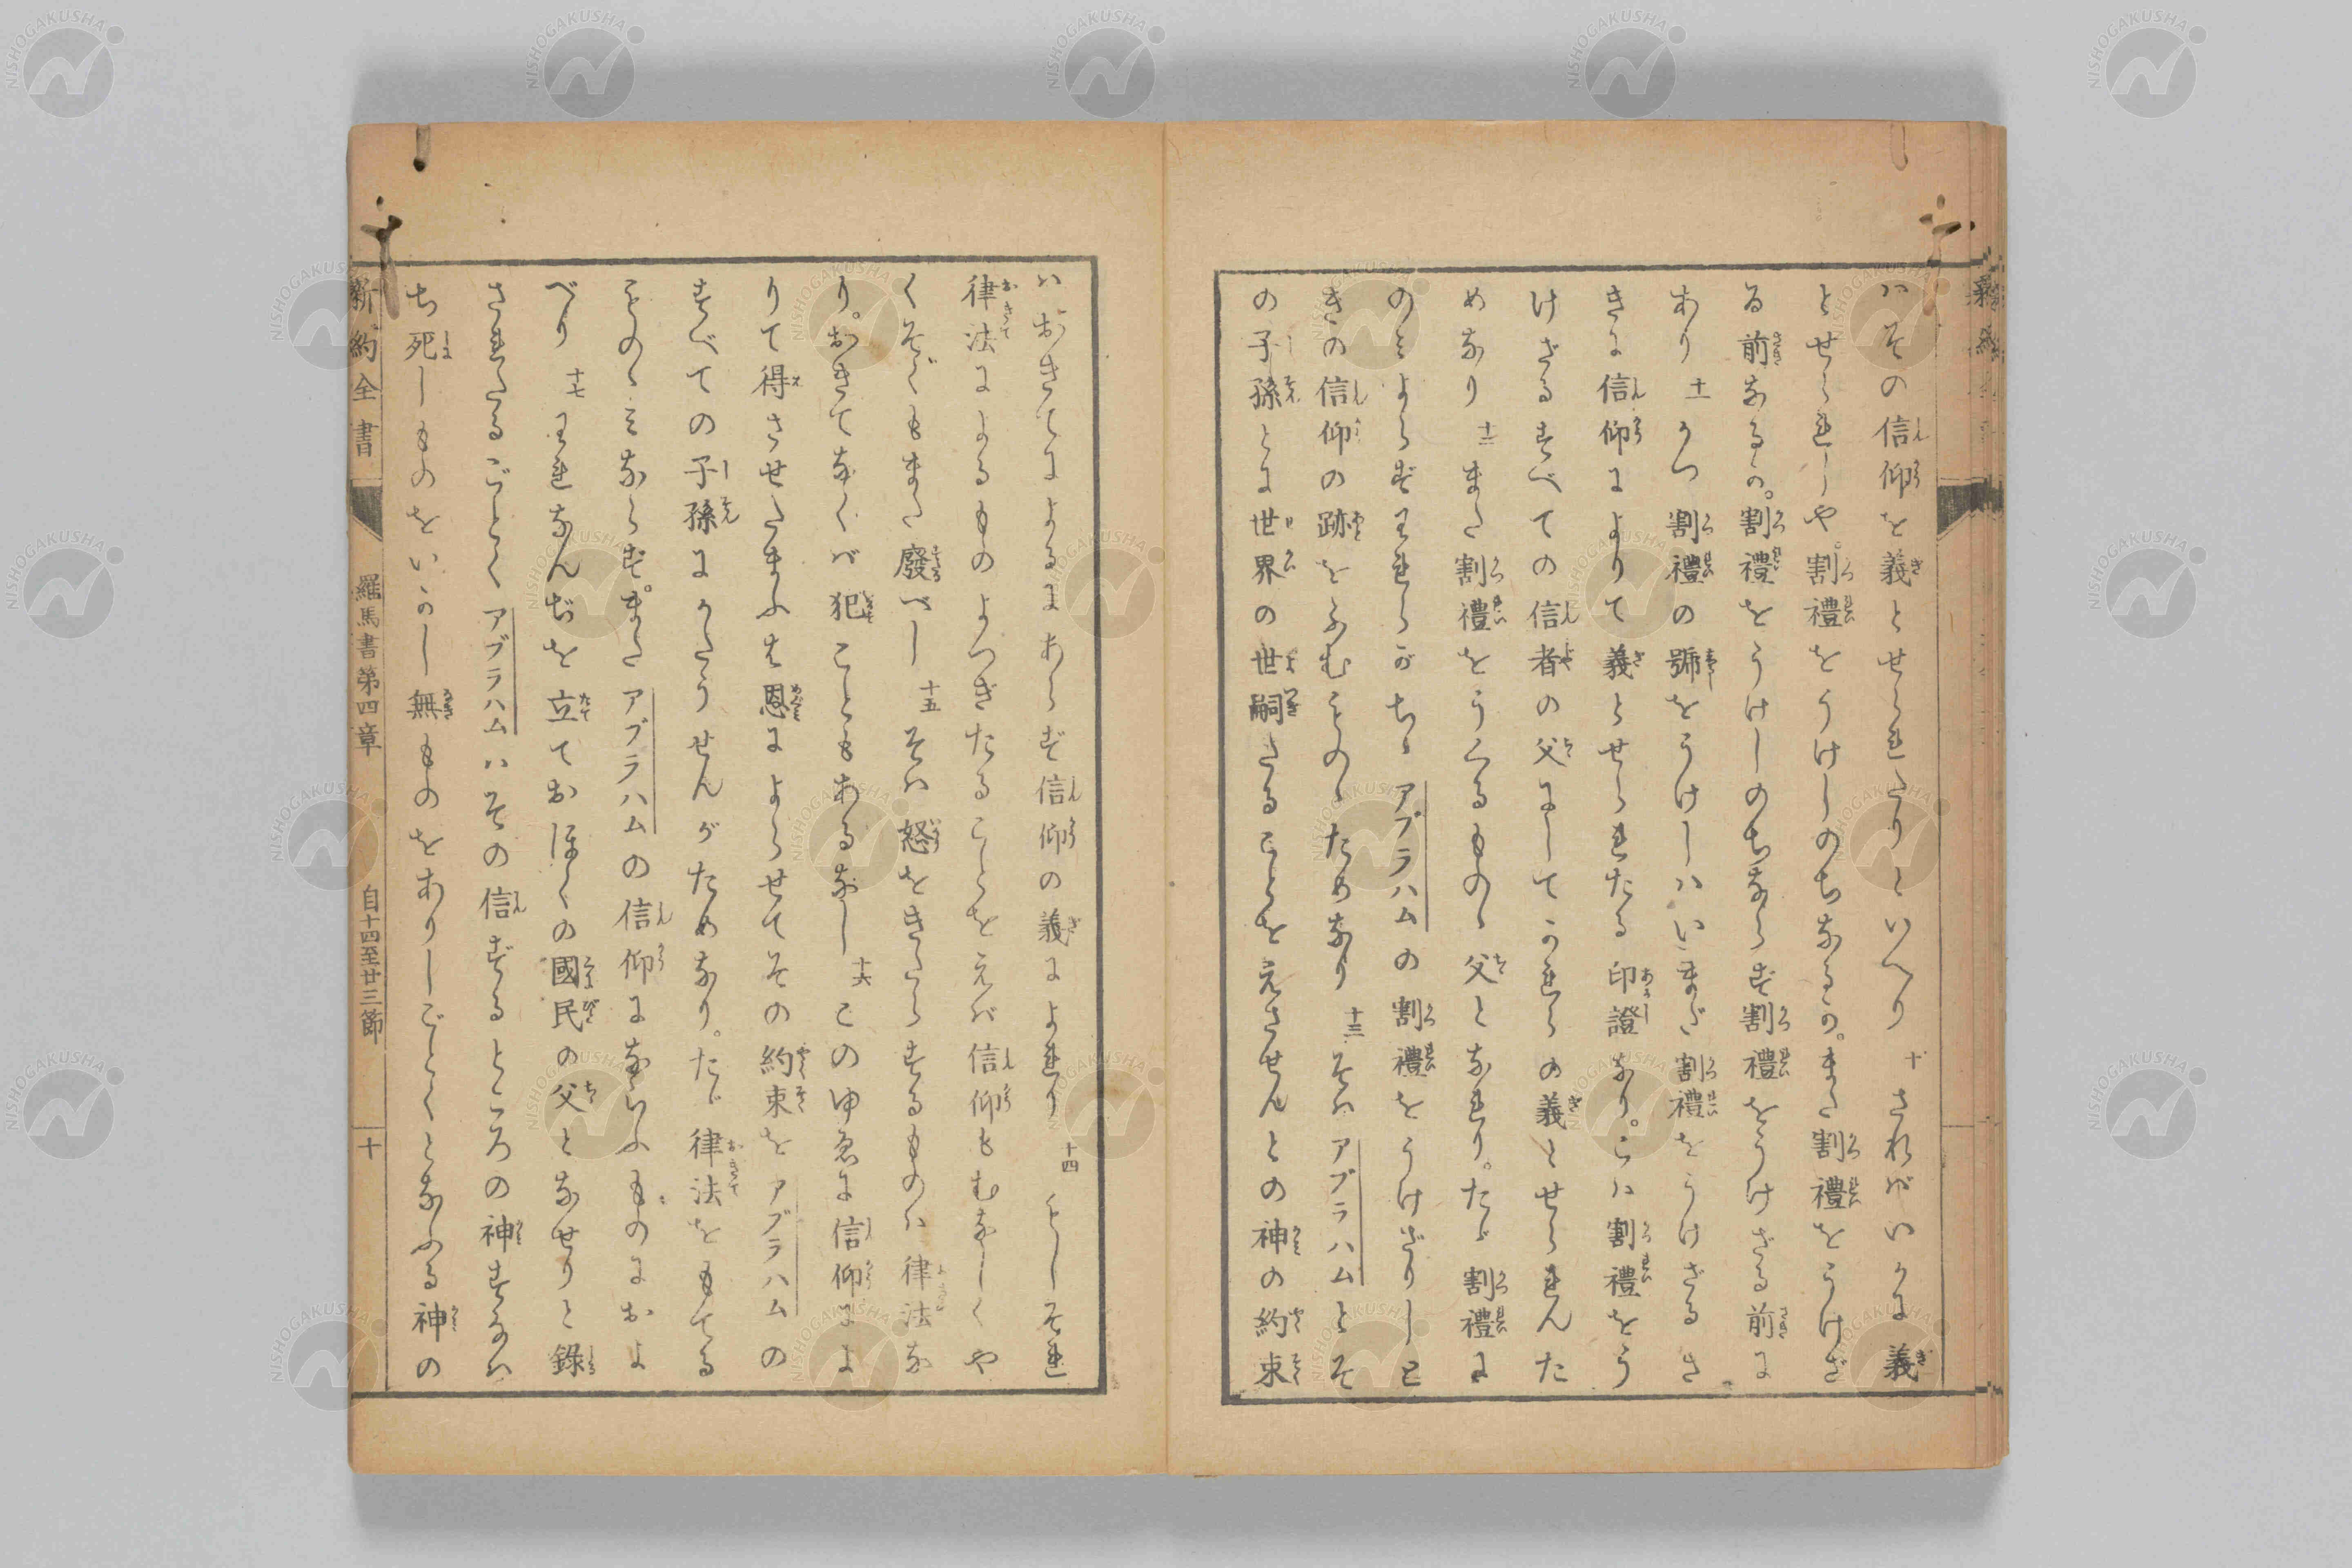 ハその信仰を義とせられたりといへり 十 されバいかに義
とせられしや。割禮をうけしのちなるか。また割禮をうけざ
る前なるか。割禮をうけしのちならず割禮をうけざる前に
あり 十一 かつ割禮の號をうけしハいまだ割禮をうけざるさ
きに信仰によりて義とせられたる印證なり。こハ割禮をう
けざるすべての信者の父にしてかれらの義とせられんた
めなり 十二 また割禮をうくるものゝ父となれり。たゞ割禮に
のミよらずわれらがちゝアブラハムの割禮をうけざりしと
きの信仰の跡をふむものゝためなり 十三 そハアブラハムとそ
の子孫とに世界の世嗣たることを えさせんとの神の約束
ハおきてによるにあらず信仰の義によれり 十四 もしそれ
律法によるものよつぎたることをえバ信仰もむなしくや
くそくもまた廢べし 十五 そハ怒をきたらするものハ律法な
り。おきてなくバ犯こともあるなし 十六 このゆゑに信仰によ
りて得させたまふは恩によらせてその約束をアブラハムの
すべての子孫にかたうせんがためなり。たゞ律法をもてる
ものゝミならず。またアブラハムの信仰にならふものにおよ
べり 十七 われなんぢを立ておほくの國民の父となせりと錄
されたるごとくアブラハムハその信ずるところの神すなハ
ち死しものをいかし無ものをありしごとくとなふる神の
新約全書 羅馬書第四章 自十四至廿三節 十